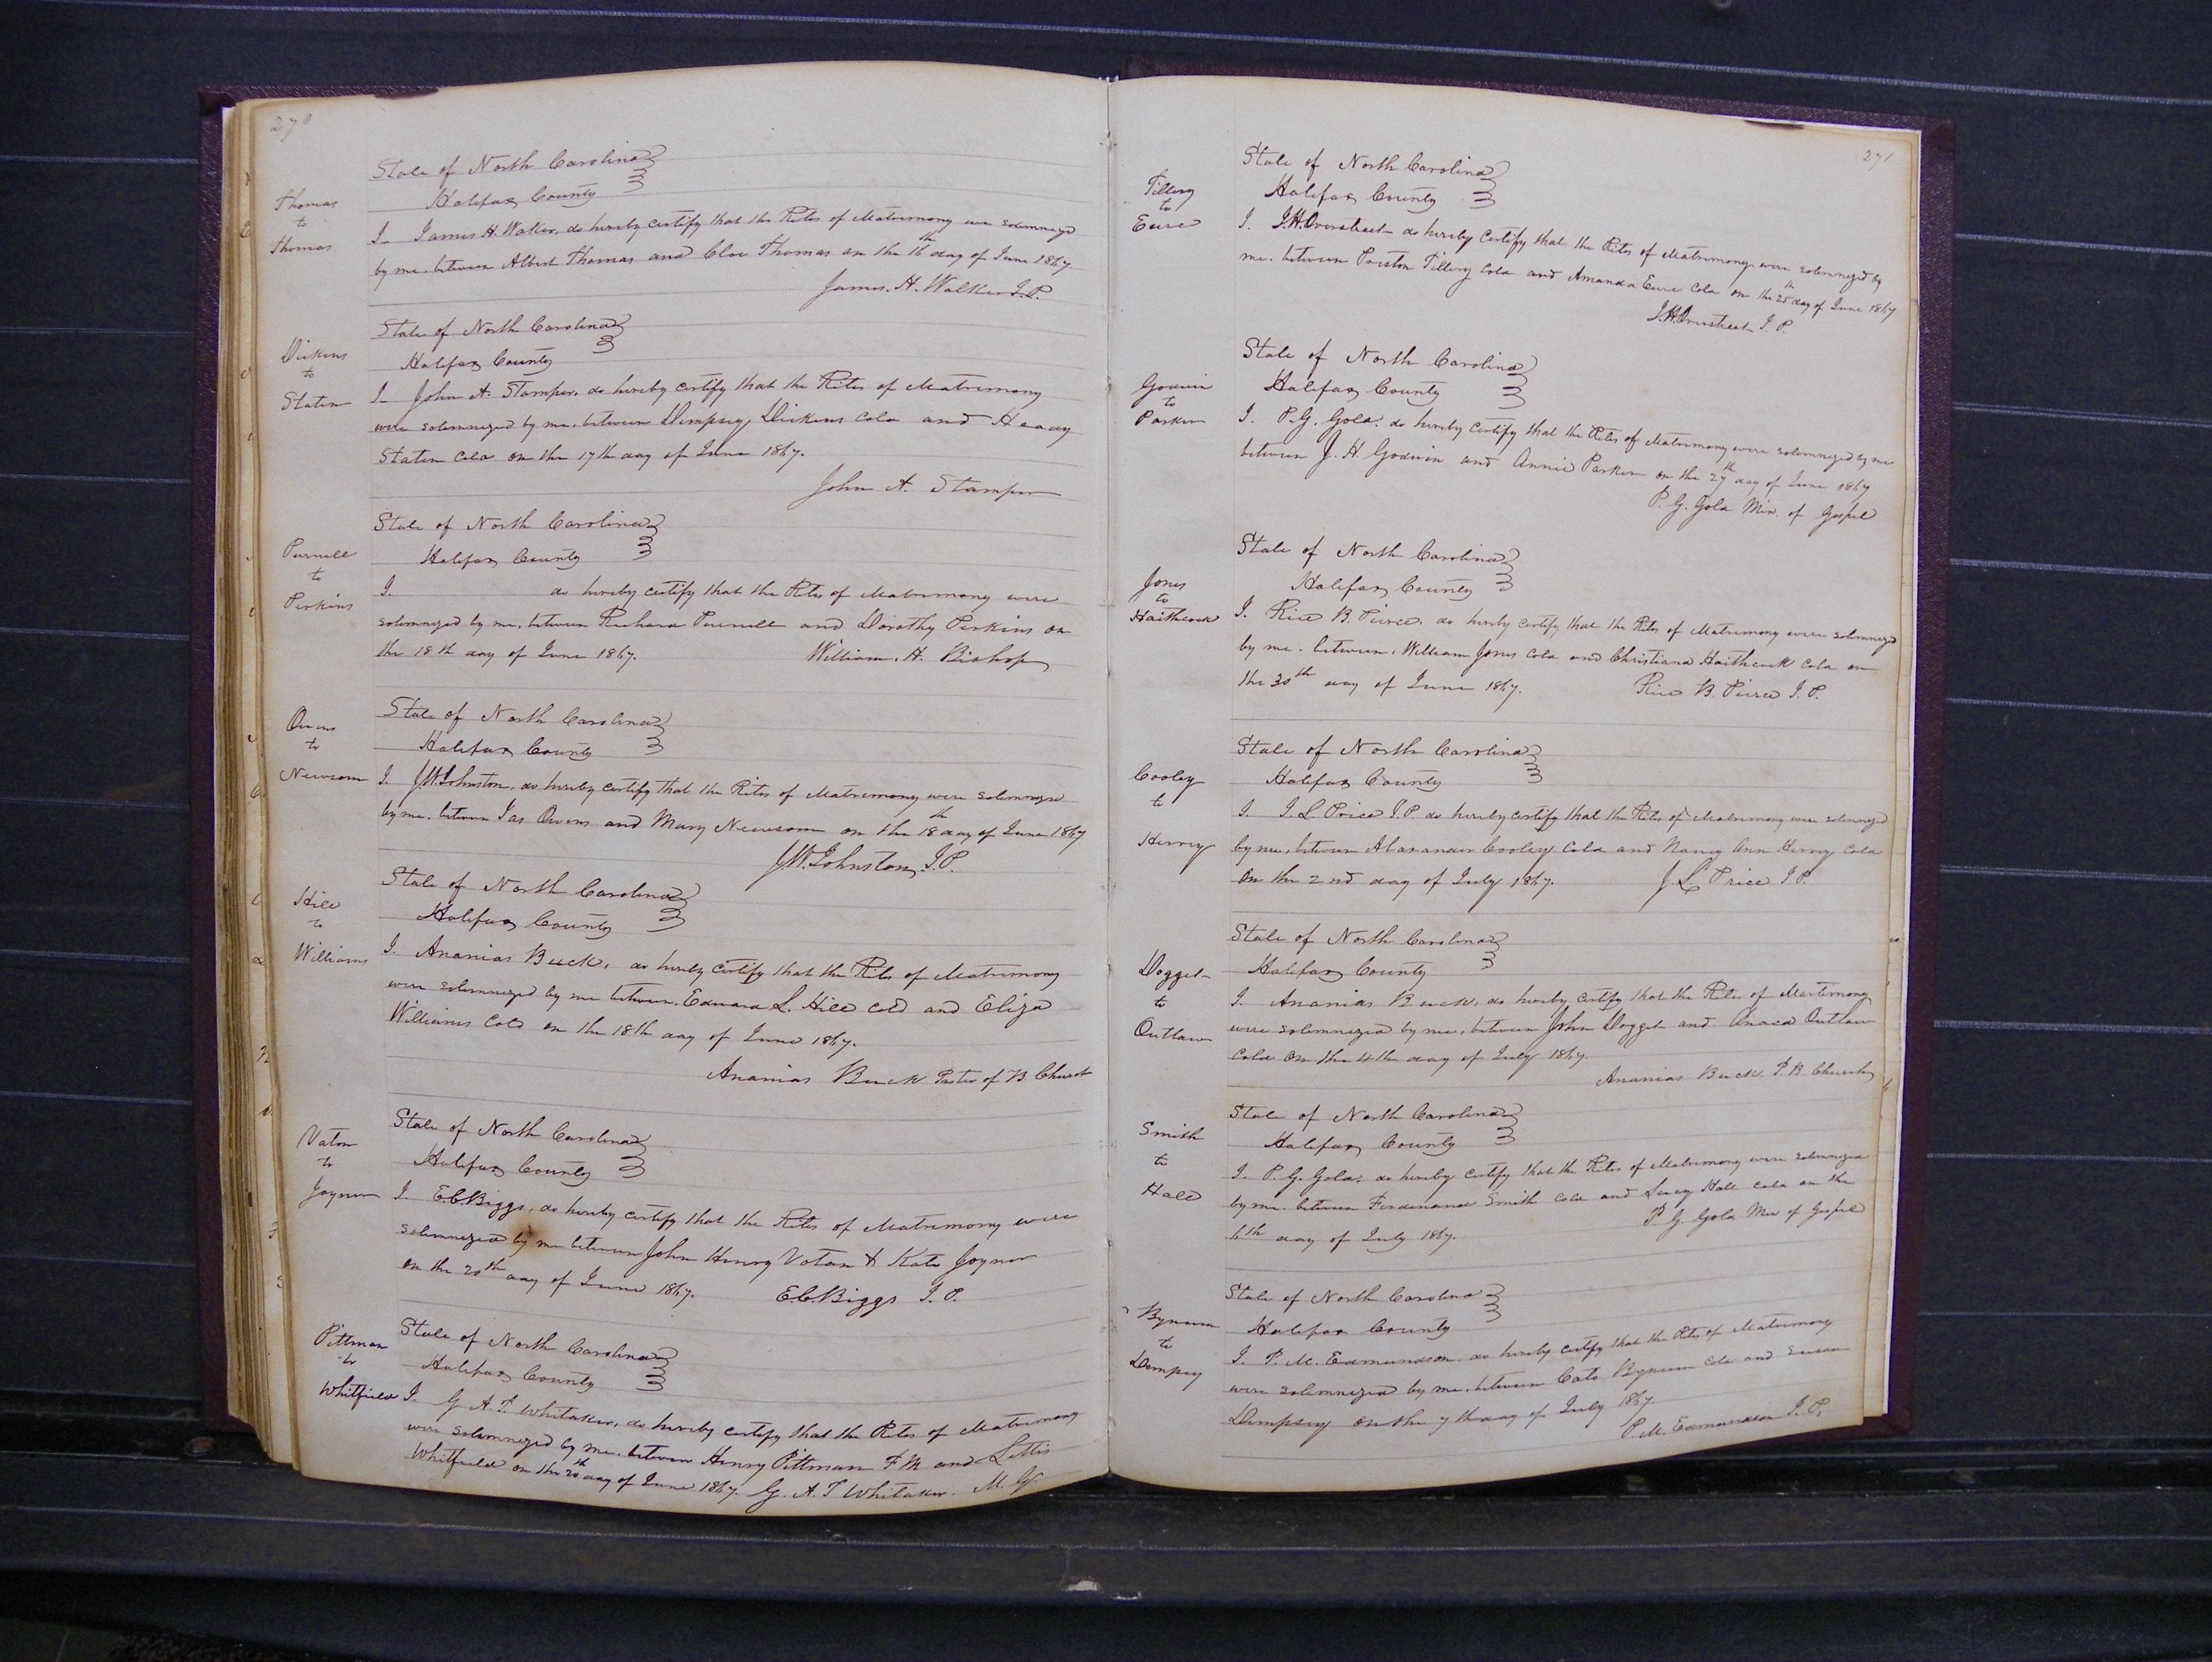 270
State of North Carolina
Halifax County
Thomas
to
Thomas
I James H. Walker, do hereby certify that the Rites of Matrimony were solemnized
by me. between Albert Thomas and Cloe Thomas on the 16th day of June 1867
James. H. Walker J.P.
State of North Carolina
Halifax County
Dickens
to
Staten
I John A. Stamper, do hereby certify that the Rites of Matrimony
were solemnized by me, between Dempsey Dickens Cold and
Staten Cold on the 17th day of June 1867.
John A. Stamper
State of North Carolina
Halifax County
Purnell
to
Perkins
I. do hereby certify that the Rites of Matrimony were
solemnized by me, between Richard Purnell and Dorothy Perkins on
the 18th day of June 1867. William. H. Bishop
State of North Carolina
Halifax County
Owens
to
Newsom
I. J.W. Johnston, do hereby certify that the Rites of Matrimony were solemnized
by me. between Jas Owens and Mary Newsom on the 18th day of June 1867
J.W. Johnston, J.P.
State of North Carolina
Halifax County
Hill
to
Williams
I. Ananias Buck, do hereby certify that the Rites of Matrimony
were solemnized by me between, Edward L. Hill Cold and Eliza
Williams Cold on the 18th day of June 1867.
Ananias Buck Pastor of B. Church
State of North Carolina
Halifax County
Vaton
to
Joyner
I. E.C. Biggs, do hereby certify that the Rites of Matrimony were
solemnized by me between John Henry Vaton & Kate Joyner
on the 20th day of June 1867. E.C. Biggs J.P.
State of North Carolina
Halifax County
Pittman
to
Whitfield
I. G. A. T. Whitaker, do hereby certify that the Rites of Matrimony
were solemnized by me. between Henry Pittman F M and Lettis
Whitfield on the 20th day of June 1867. G. A. T Whitaker. M. G.
271
State of North Carolina
Halifax County
Tillery
to
Eure
I. J.H. Overstreet do hereby certify that the Rites of Matrimony were solemnized by
me. between Preston Tillery Cold and Amanda Eure Cold on the 25th day of June 1867
J.H. Overstreet J.P.
State of North Carolina
Halifax County
Godwin
to
Parker
I. P.G. Gold. do hereby certify that the Rites of Matrimony were solemnized by me
between J. H. Godwin and Annie Parker on the 27th day of June 1867
P. G. Gold Min. of Gospel
State of North Carolina
Halifax County
Jones
to
Haithcock
I. Rice B. Pierce, do hereby certify that the Rites of Matrimony were solemnized
by me. between, William Jones Cold and Christiana Haithcock Cold on
the 30th day of June 1867. Rice B. Pierce J.P.
State of North Carolina
Halifax County
Cooley
to
Hervey
I. J.L. Price J.P. do hereby certify that the Rites of Matrimony were solemnized
by me, between Alaxander Cooley Cold and Nancy Ann Hervey Cold
on the 2nd day of July 1867. J L Price J.P.
State of North Carolina
Halifax County
Dogget
to
Outlaw
I. Ananias Buck, do hereby certify that the Rites of Martimony
were solemnized by me, between John Dogget and Outlaw
Cold on the 4th day of July 1867.
Ananias Buck. P. B. Church
State of North Carolina
Halifax County
Smith
to
Hall
I. P. G. Gold, do hereby certify that the Rites of Matrimony were solemnized
by me. between Ferdinand Smith Cold and Lucy Hall Cold on the
6th day of July 1867. P. G. Gold Min of Gospel
State of North Carolina
Halifax County
Bynum
to
Dempsey
I. P. M. Edmundson, do hereby certify that the Rites of Matrimony
were solemnized by me. between Cato Bynum Cold and Susan
Dempsey on the 7th day of July 1867.
P. M. Edmundson J.P.